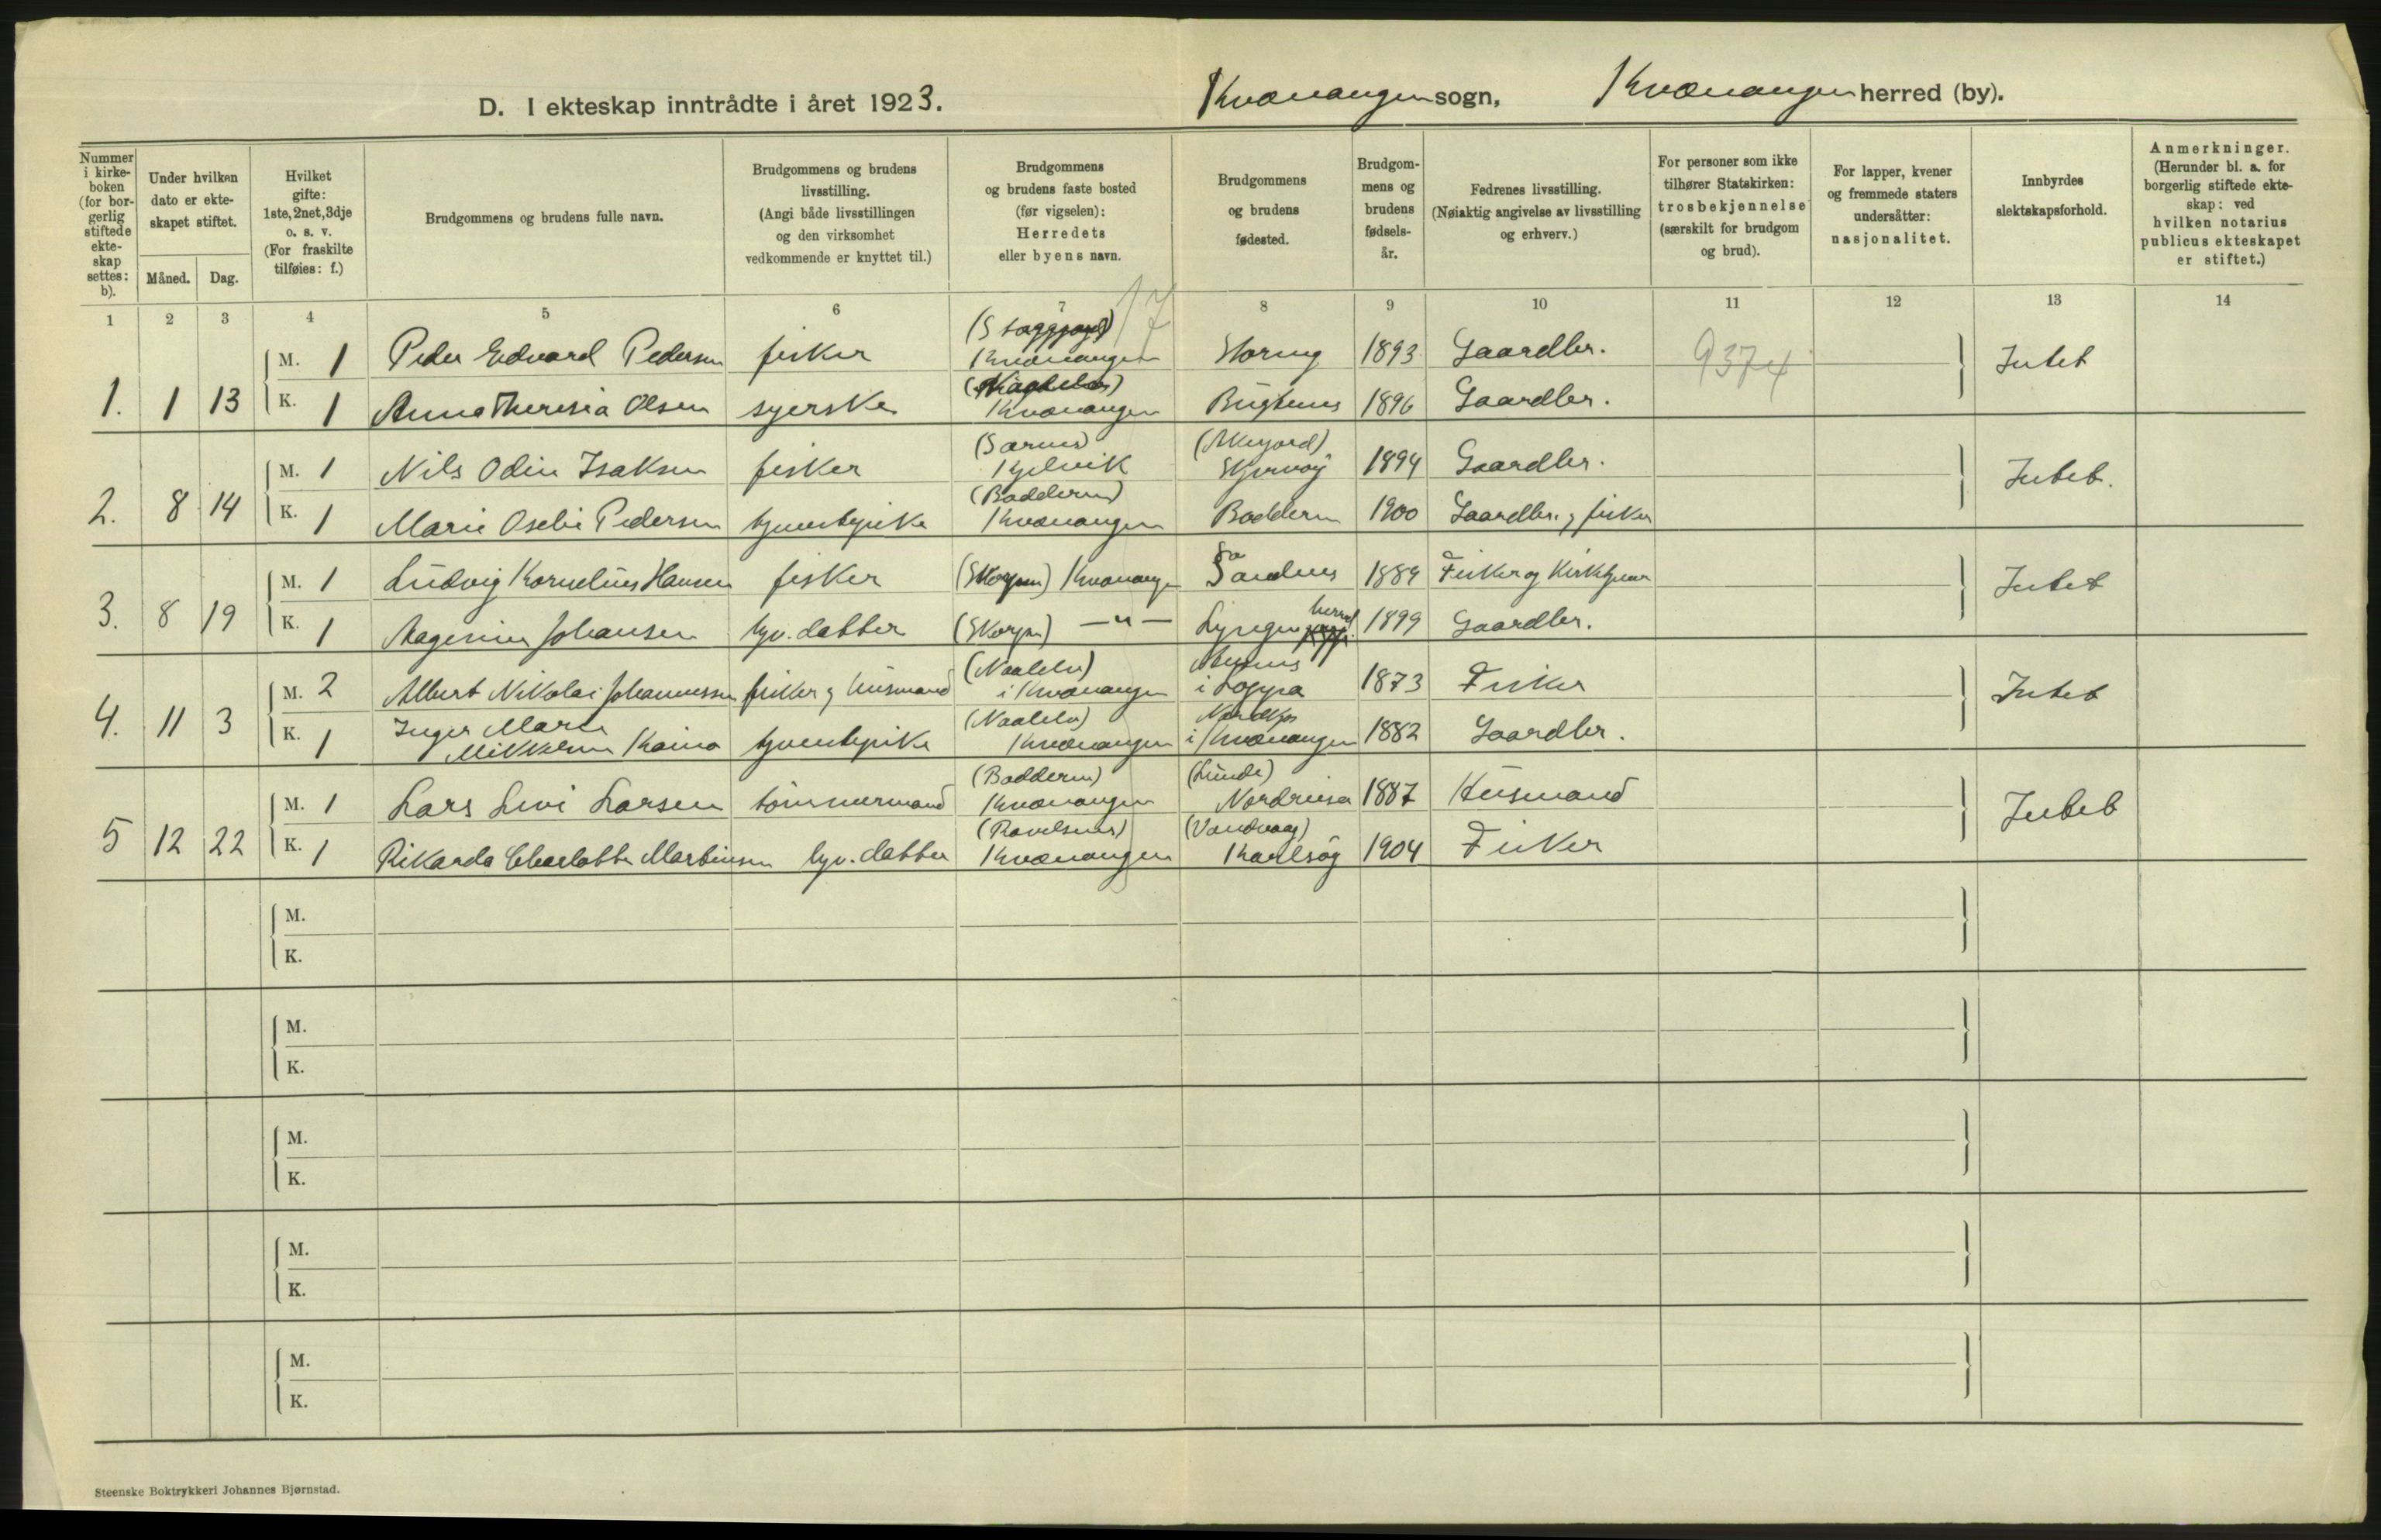 D. I ekteskap inntrådte i året 1923. Kvænangen sogn, Kvænangen herred (by).
Nummer i kirkeboken (for borgerlig stiftede ekteskap settes: b).
Under hvilken dato er ekteskapet stiftet.
Måned. Dag.
Hvilket gifte: 1ste, 2net, 3dje o. s. v. (For fraskilte tilføies: f.)
Brudgommens og brudens fulle navn.
Brudgommens og brudens livsstilling. (Angi både livsstillingen og den virksomhet vedkommende er knyttet til.)
Brudgommens og brudens faste bosted (før vigselen): Herredets eller byens navn.
Brudgommens og brudens fødested.
Brudgommens og brudens fødselsår.
Fedrenes livsstilling. (Nøiaktig angivelse av livsstilling og erhverv.)
For personer som ikke tilhører Statskirken: trosbekjennelse (særskilt for brudgom og brud).
For lapper, kvener og fremmede staters undersåtter: nasjonalitet.
Innbyrdes slektskapsforhold.
Anmerkninger. (Herunder bl. a. for borgerlig stiftede ekteskap: ved hvilken notarius publicus ekteskapet er stiftet.)
1 2 3 4 5 6 7 8 9 10 11 12 13 14
17
1. 1 13
M. 1 Peder Edvard Pedersen fisker Kvænangen 1893 Gaardbr. 9374 Intet
K. 1 Anna Theresia Olsen syerske Kvænangen 1896 Gaardbr.
2. 8 14
M. 1 Nils Odin Isaksen fisker Kjelvik Skjervøy 1894 Gaardbr. Intet.
K. 1 Marie Oselie Pedersen tjenestepike (Badderen) Kvænangen Badderen 1900 Gaardbr. og fisker
3. 8 19
M. 1 Ludvig Kornelius Hansen fisker (Skorpen) Kvænangen Sandnes 1889 Fisker og Kirketjener Intet
K. 1 Aagenine Johansen hjv. datter (Skorpen) — " — Lyngen herred 1899 Gaardbr.
4. 11 3
M. 2 Albert Nikolai Johannessen fisker og husmand (Naalelv) i Kvænangen i Loppa 1873 Fisker Intet
K. 1 Inger Marie Mikkelsen Kaino tjenestepike (Naalelv) Kvænangen i Kvænangen 1882 Gaardbr.
5 12 22
M. 1 Lars Levi Larsen tømmermand (Badderen) Kvænangen (Lunde) Nordreisa 1887 Husmand Intet
K. 1 Rikarda Charlotte Martinsen hjv. datter Kvænangen (Vandvaag) Karlsøy 1904 Fisker
M.
K.
M.
K.
M.
K.
M.
K.
M.
K.
Steenske Boktrykkeri Johannes Bjørnstad.